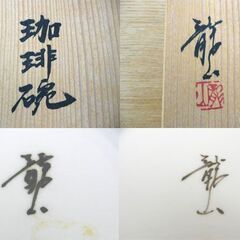 珈琲碗
龍山
龍山
龍山